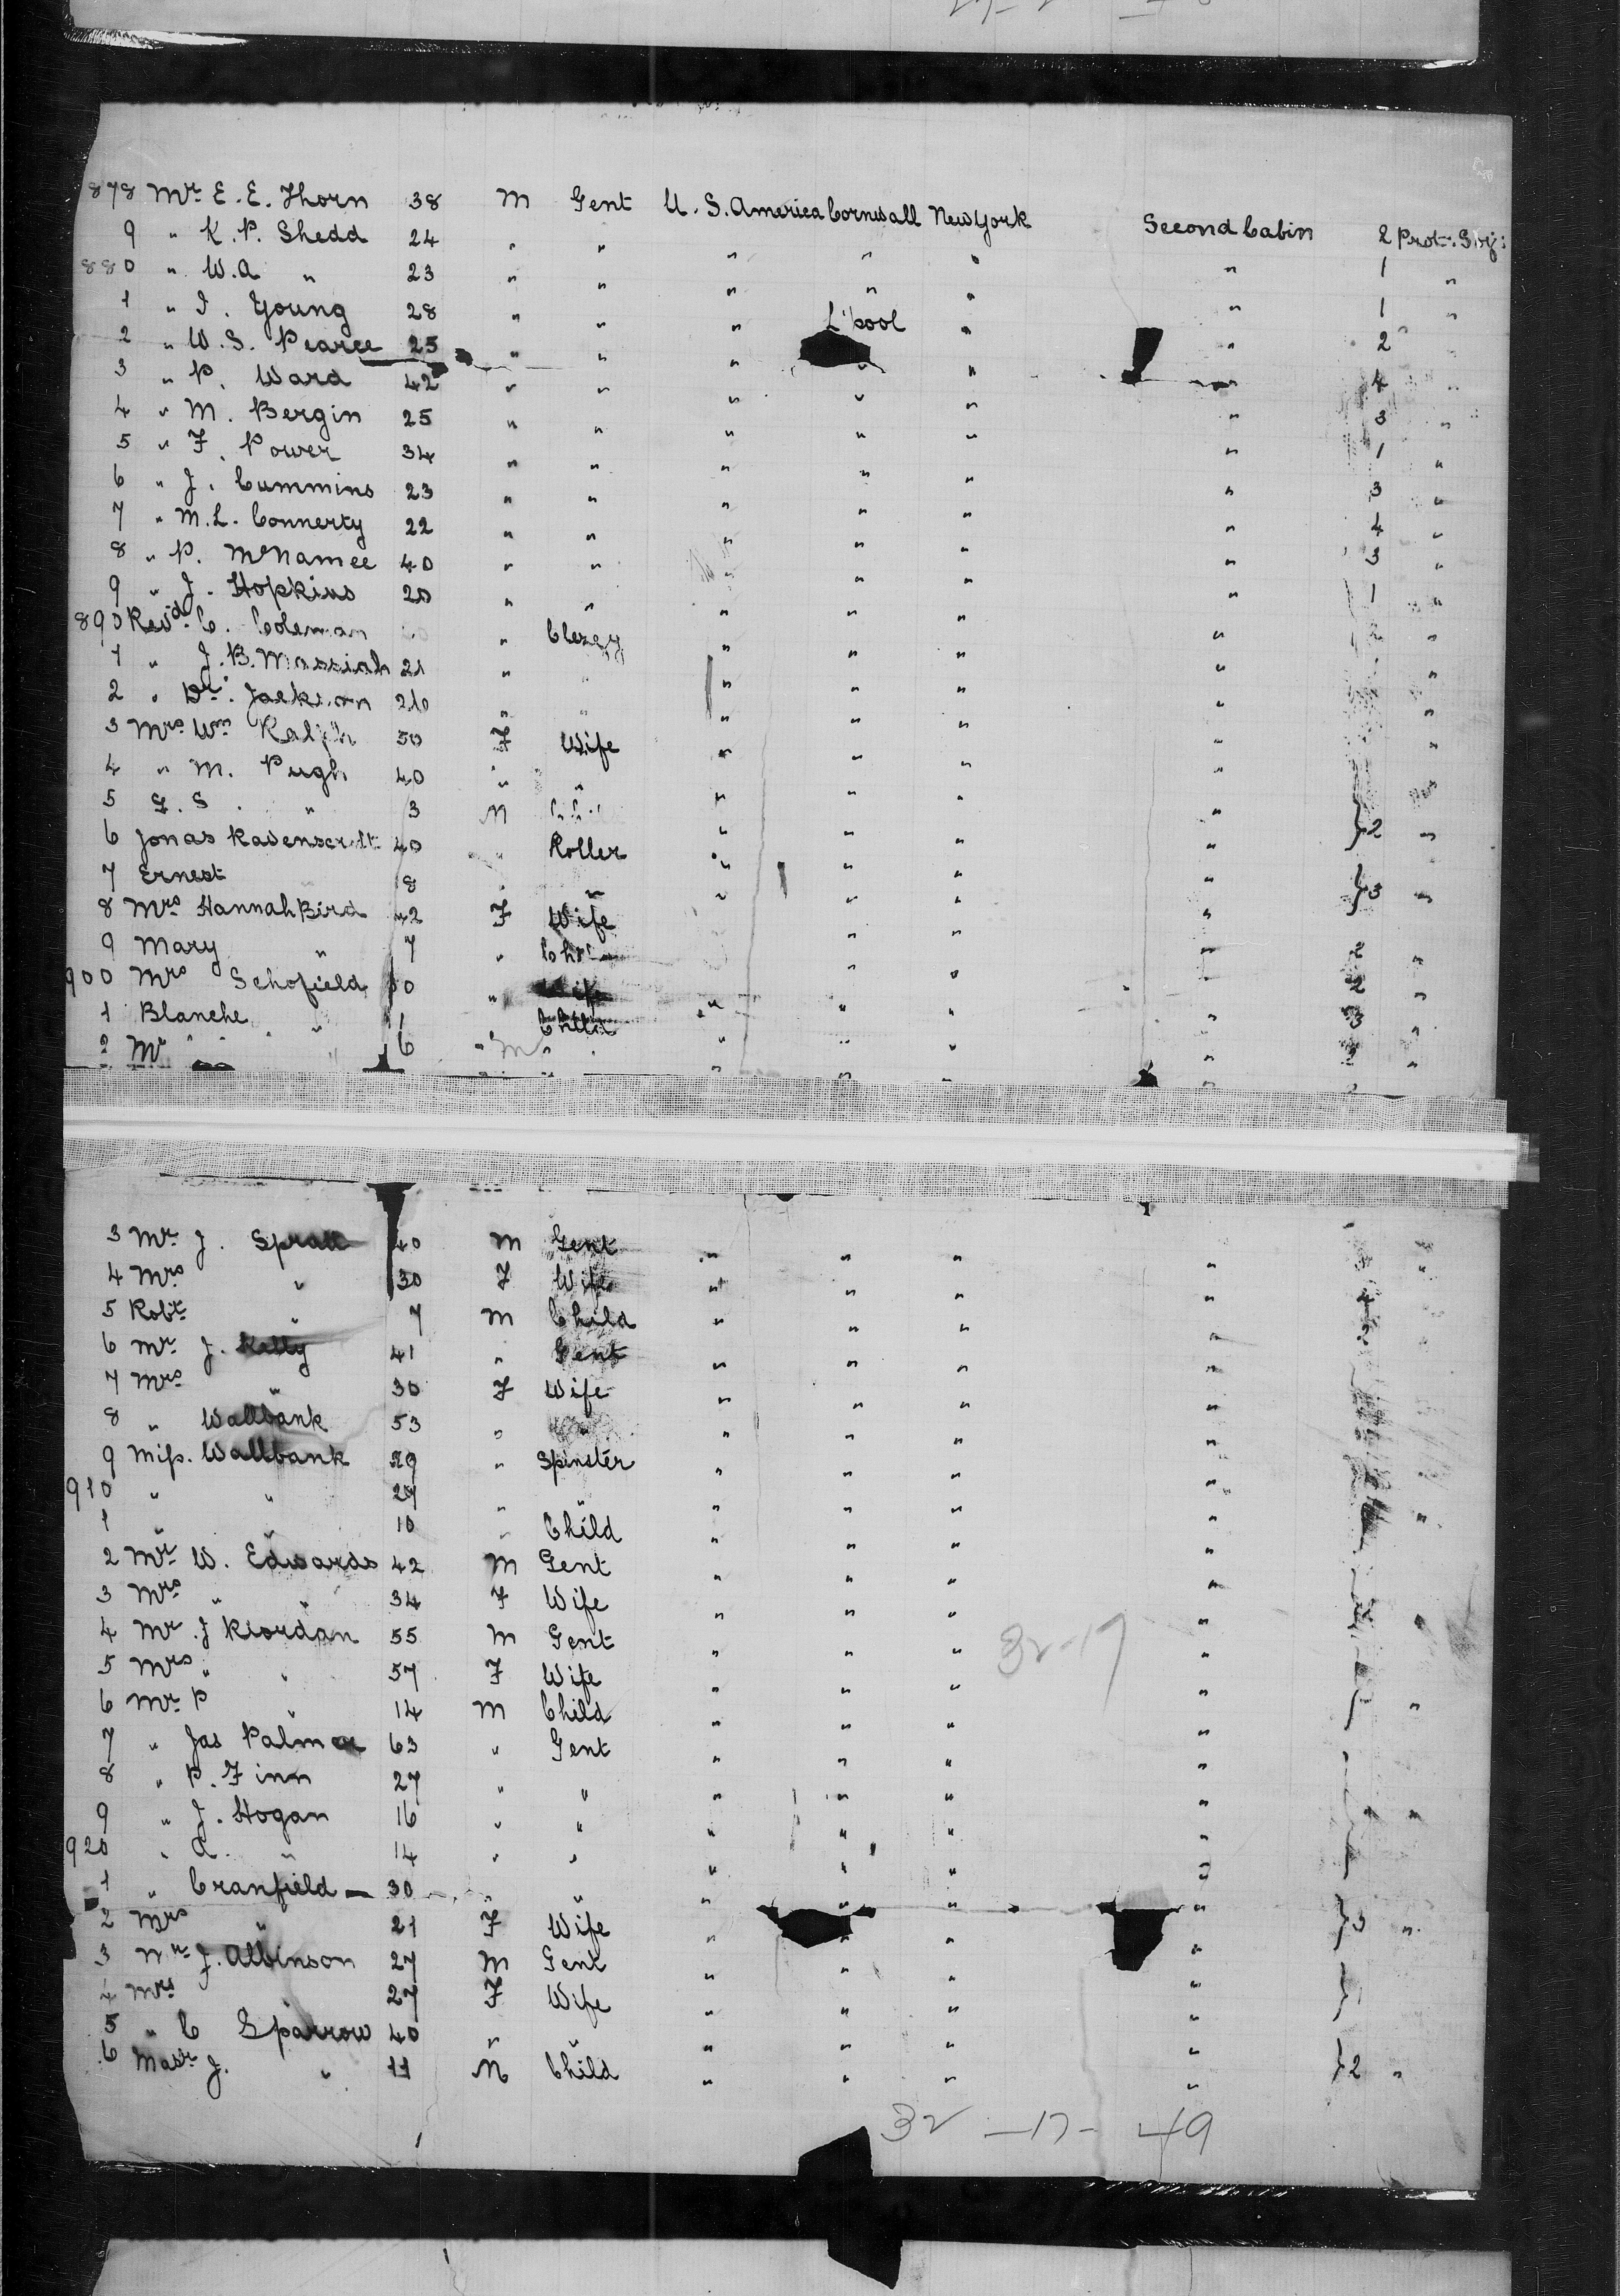 878 Mr. E. E. Thorn 38 M Gent U. S. America Cornwall New York Second Cabin 2 Prot: Soj:
9 " K. P. Shedd 24 " " " " " " 1 "
880 " W. A " 23 " " " " " " 1 "
1 " I. Young 28 " " " L'pool " " 2
2 " W. S. Pearce 25 " " " " " " 4 "
3 " P. Ward 42 " " " " " " 3 "
4 " M. Bergin 25 " " " " " " 1 "
5 " F. Power 34 " " " " " " 3 "
6 " J. Cummins 23 " " " " " " 4 "
7 " M. L. Connerty 22 " " " " " " 3 "
8 " P. McNamee 40 " " " " " " 1 "
9 " J. Hopkins 20 " " " " " "
890 Revd. C. Coleman " Clergy " " " " "
1 " J. B. Massiah 21 " " " " " "
2 " Dr. Jackson 26 " " " " " " "
3 Mrs. Wm Ralph 50 F Wife " " " " "
4 " M. Pugh 40 " " " " " "
5 G. S. " 3 M " " " " } 2 "
6 Jonas Ravenscroft 40 " Roller " " " "
7 Ernest " 8 " " " " " " } 3 "
8 Mrs Hannah Bird 42 F Wife " " " "
9 Mary " 7 " " " " " 2 "
900 Mrs Schofield " Wife " " " " 2 "
1 Blanche " " Child " " " " 3 "
2 Mr 6 " M " " " " " "
3 Mr. J. Spratt 40 M Gent " " " " "
4 Mrs " 30 F Wife " " " "
5 Robt. " 7 M Child " " " "
6 Mr. J. Kelly 41 " Gent " " " "
7 Mrs " 30 F Wife " " " "
8 " Wallbank 53 " " " " " "
9 Miss. Wallbank 29 " Spinster " " " "
910 " " 27 " " " " " " "
1 " " 10 " Child " " " "
2 Mr. W. Edwards 42 M Gent " " " "
3 Mrs " " 34 F Wife " " " " "
4 Mr. J Riordan 55 M Gent " " " 32-17 "
5 Mrs " " 57 F Wife " " " "
6 Mr. P " 14 M Child " " " " "
7 " Jas Palmer 63 " Gent " " " "
8 " P. Finn 27 " " " " " "
9 " J. Hogan 16 " " " " " " "
920 " A. " 14 " " " " " "
1 " Cranfield 30 " " " " " "
2 Mrs " 21 F Wife " " " } 3 "
3 Mr. J. Albinson 27 M Gent " " " "
4 Mrs " 27 F Wife " " " " }
5 " C Sparrow 40 " " " " " "
6 Mastr J. " 11 M Child " " " " } 2 "
32 - 17 - 49